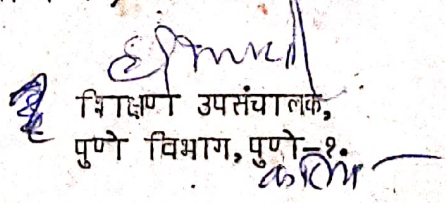 शिक्षण उपसंचालक,
पुणे विभाग, पुणे-१.
करिता